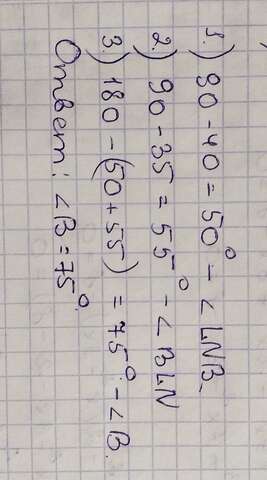 1.) 90 - 40 = 50° - ∠LNB.
2.) 90 - 35 = 55° - ∠BLN
3.) 180 - (50 + 55) = 75° - ∠B.
Ответ: ∠B = 75°.